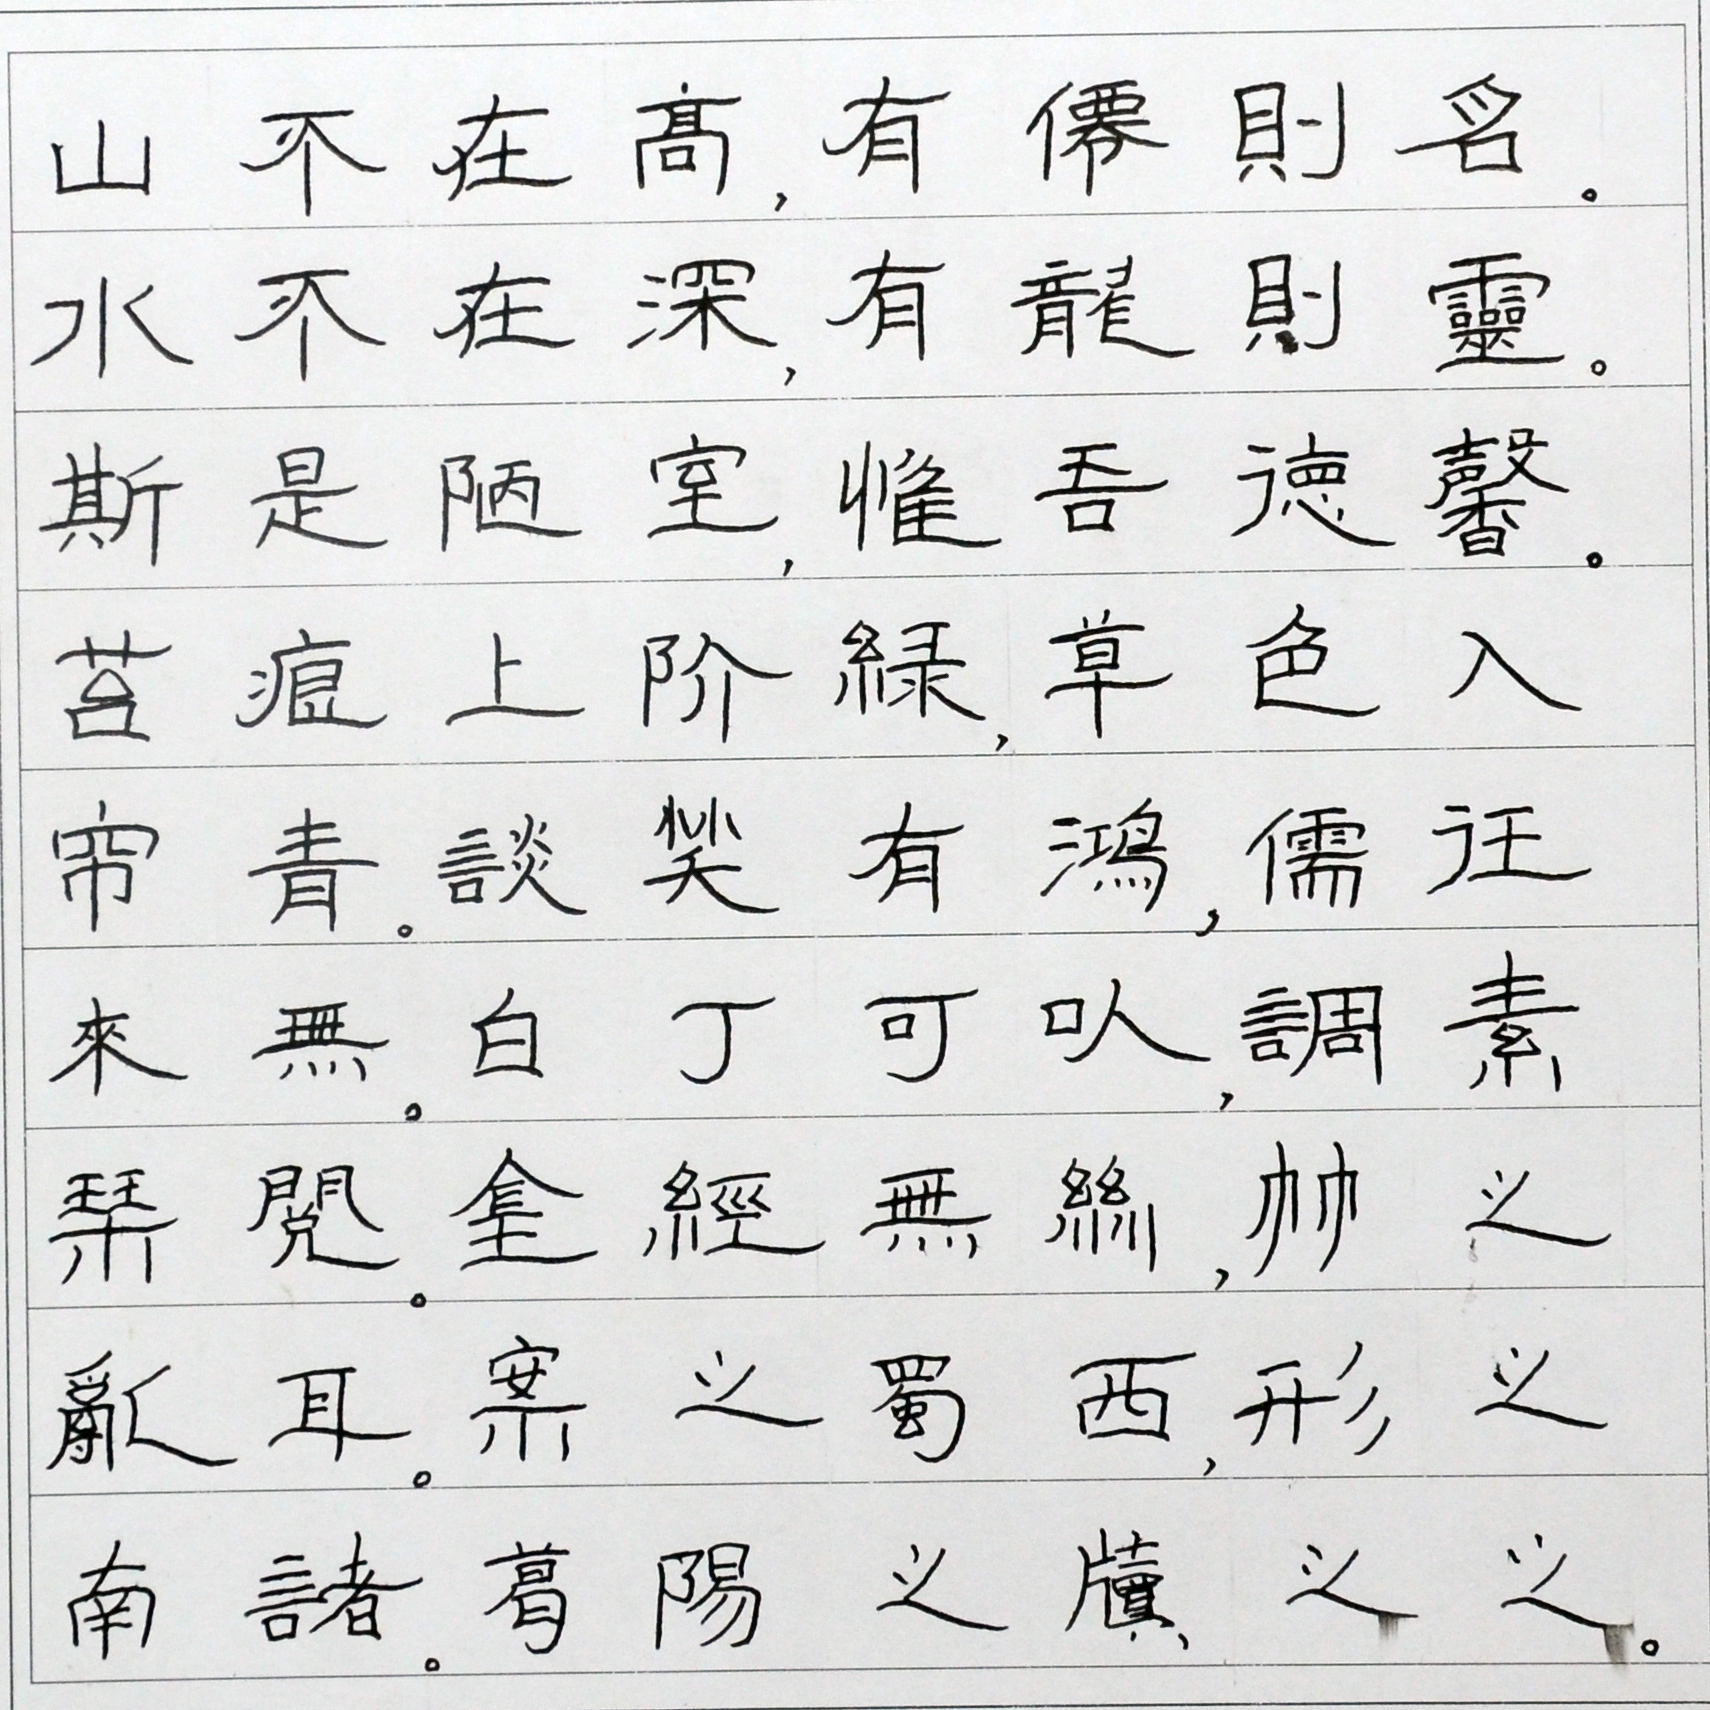 山不在高,有僊則名。
水不在深,有龍則靈。
斯是陋室,惟吾德馨。
苔痕上阶綠,草色入
帘青。談笑有鴻,儒往
來無。白丁可㕥,調素
琴閱。金經無絲,竹之
亂耳。案之蜀西,形之
南諸。葛陽之牘、之之。